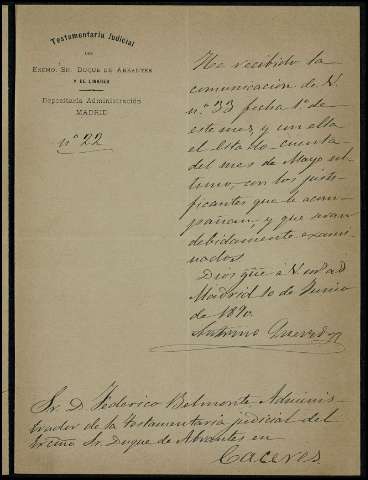 Testamentaría Judicial
DEL
EXCMO. SR. DUQUE DE ABRANTES
Y DE LINARES
Depositaría Administración
MADRID
nº 22
He recibido la
comunicacion de V.
nº 33 fecha 1º de
este mes, y con ella
el Estado-cuenta
del mes de Mayo úl-
timo, con los justi-
ficantes que le acom-
pañan, y que seran
debidamente exami-
nados.
Dios gúe á V. ms as
Madrid 10 de Junio
de 1890.
Antonio
Sr. D. Federico Belmonte Adminis-
trador de la testamentaria judicial del
Excmo Sr. Duque de Abrantes en
Caceres